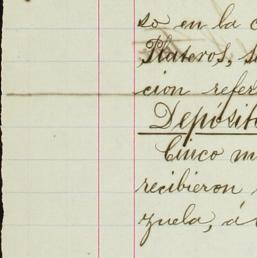 so en la c
Plateros, s
cion refer
Depósito
Cinco m
recibieron
zuela, á